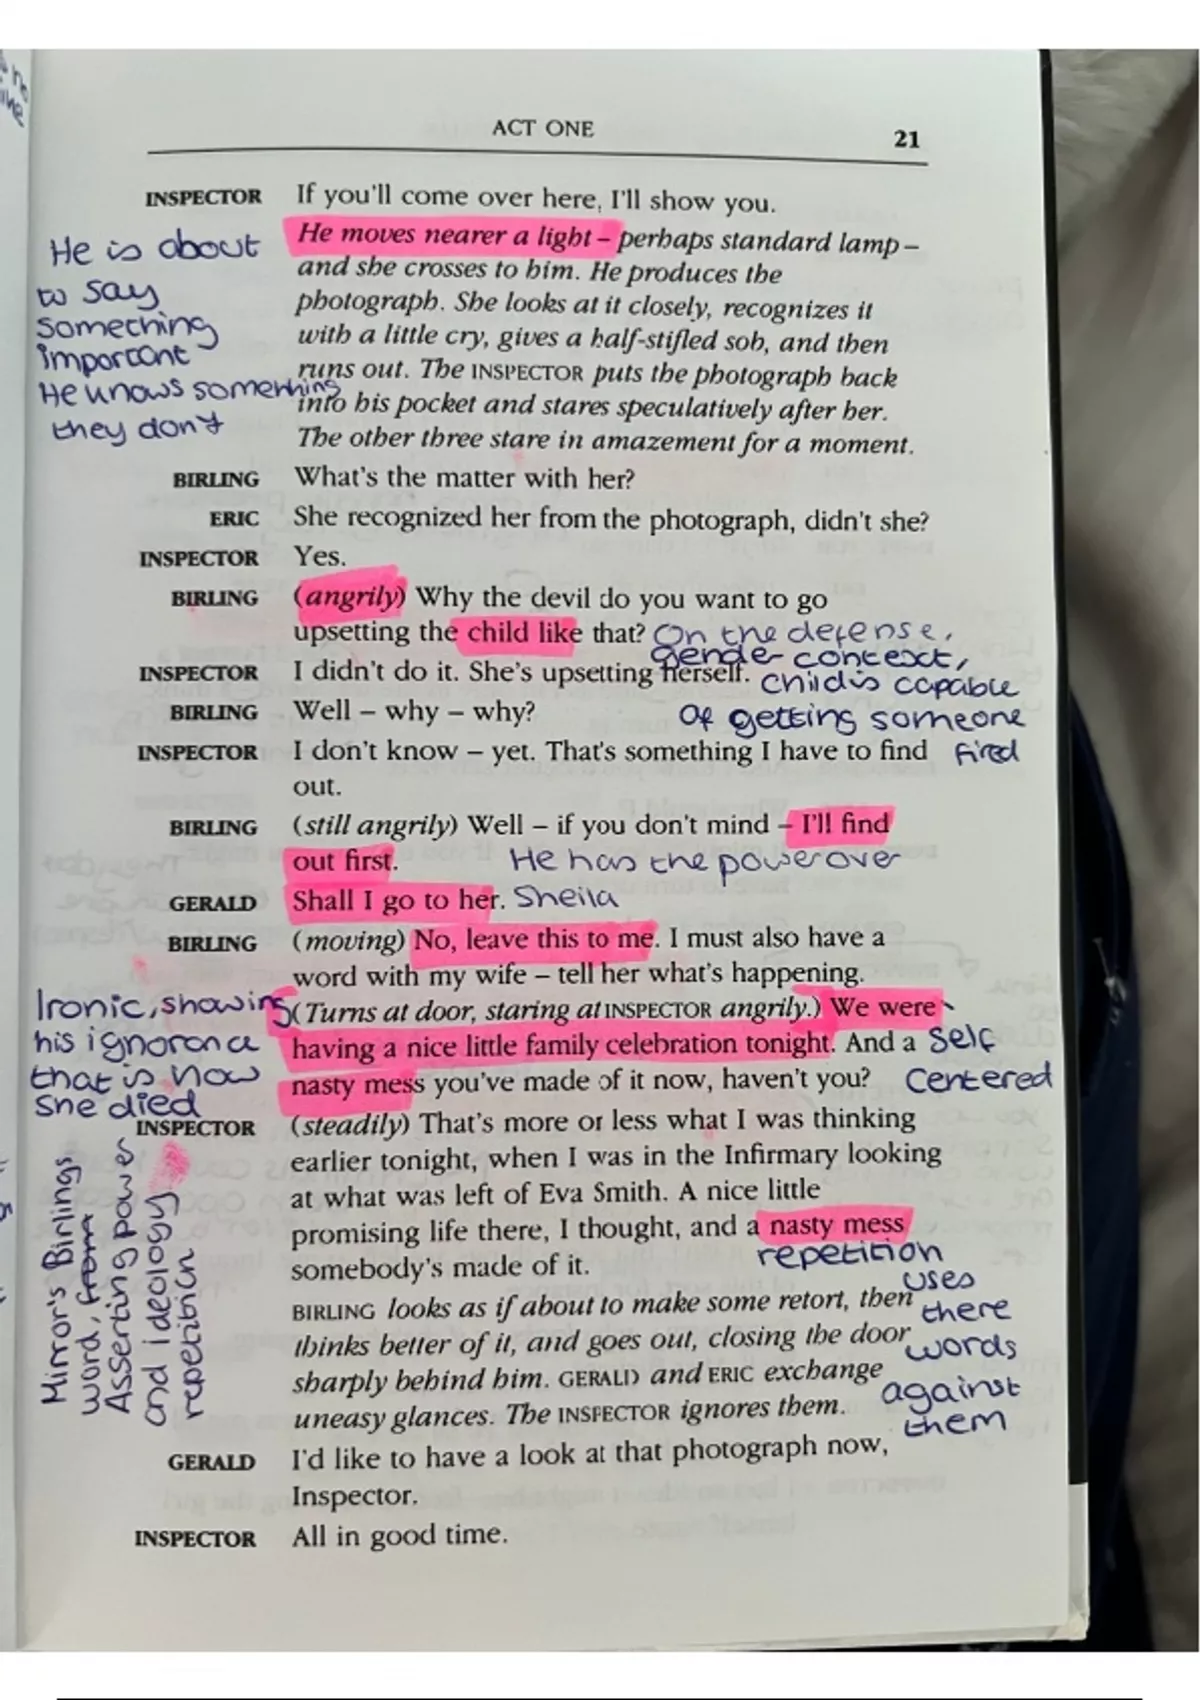 ACT ONE 21
INSPECTOR If you'll come over here, I'll show you.
He moves nearer a light – perhaps standard lamp –
and she crosses to him. He produces the
photograph. She looks at it closely, recognizes it
with a little cry, gives a half-stifled sob, and then
runs out. The INSPECTOR puts the photograph back
into his pocket and stares speculatively after her.
The other three stare in amazement for a moment.
He is about
to say
something
important
He knows something
they don't
BIRLING What's the matter with her?
ERIC She recognized her from the photograph, didn't she?
INSPECTOR Yes.
BIRLING (angrily) Why the devil do you want to go
upsetting the child like that?
On the defense,
gender context,
child is capable
of getting someone
fired
INSPECTOR I didn't do it. She's upsetting herself.
BIRLING Well – why – why?
INSPECTOR I don't know – yet. That's something I have to find
out.
BIRLING (still angrily) Well – if you don't mind – I'll find
out first.
He has the power over
Sheila
GERALD Shall I go to her.
BIRLING (moving) No, leave this to me. I must also have a
word with my wife – tell her what's happening.
(Turns at door, staring at INSPECTOR angrily.) We were
having a nice little family celebration tonight. And a
nasty mess you've made of it now, haven't you?
Self
centered
Ironic, showing
his ignorance
that is how
she died
INSPECTOR (steadily) That's more or less what I was thinking
earlier tonight, when I was in the Infirmary looking
at what was left of Eva Smith. A nice little
promising life there, I thought, and a nasty mess
somebody's made of it.
repetition
uses
there
words
against
them
Mirror's Birlings
word, from
Asserting power
and ideology
repetition
BIRLING looks as if about to make some retort, then
thinks better of it, and goes out, closing the door
sharply behind him. GERALD and ERIC exchange
uneasy glances. The INSPECTOR ignores them.
GERALD I'd like to have a look at that photograph now,
Inspector.
INSPECTOR All in good time.